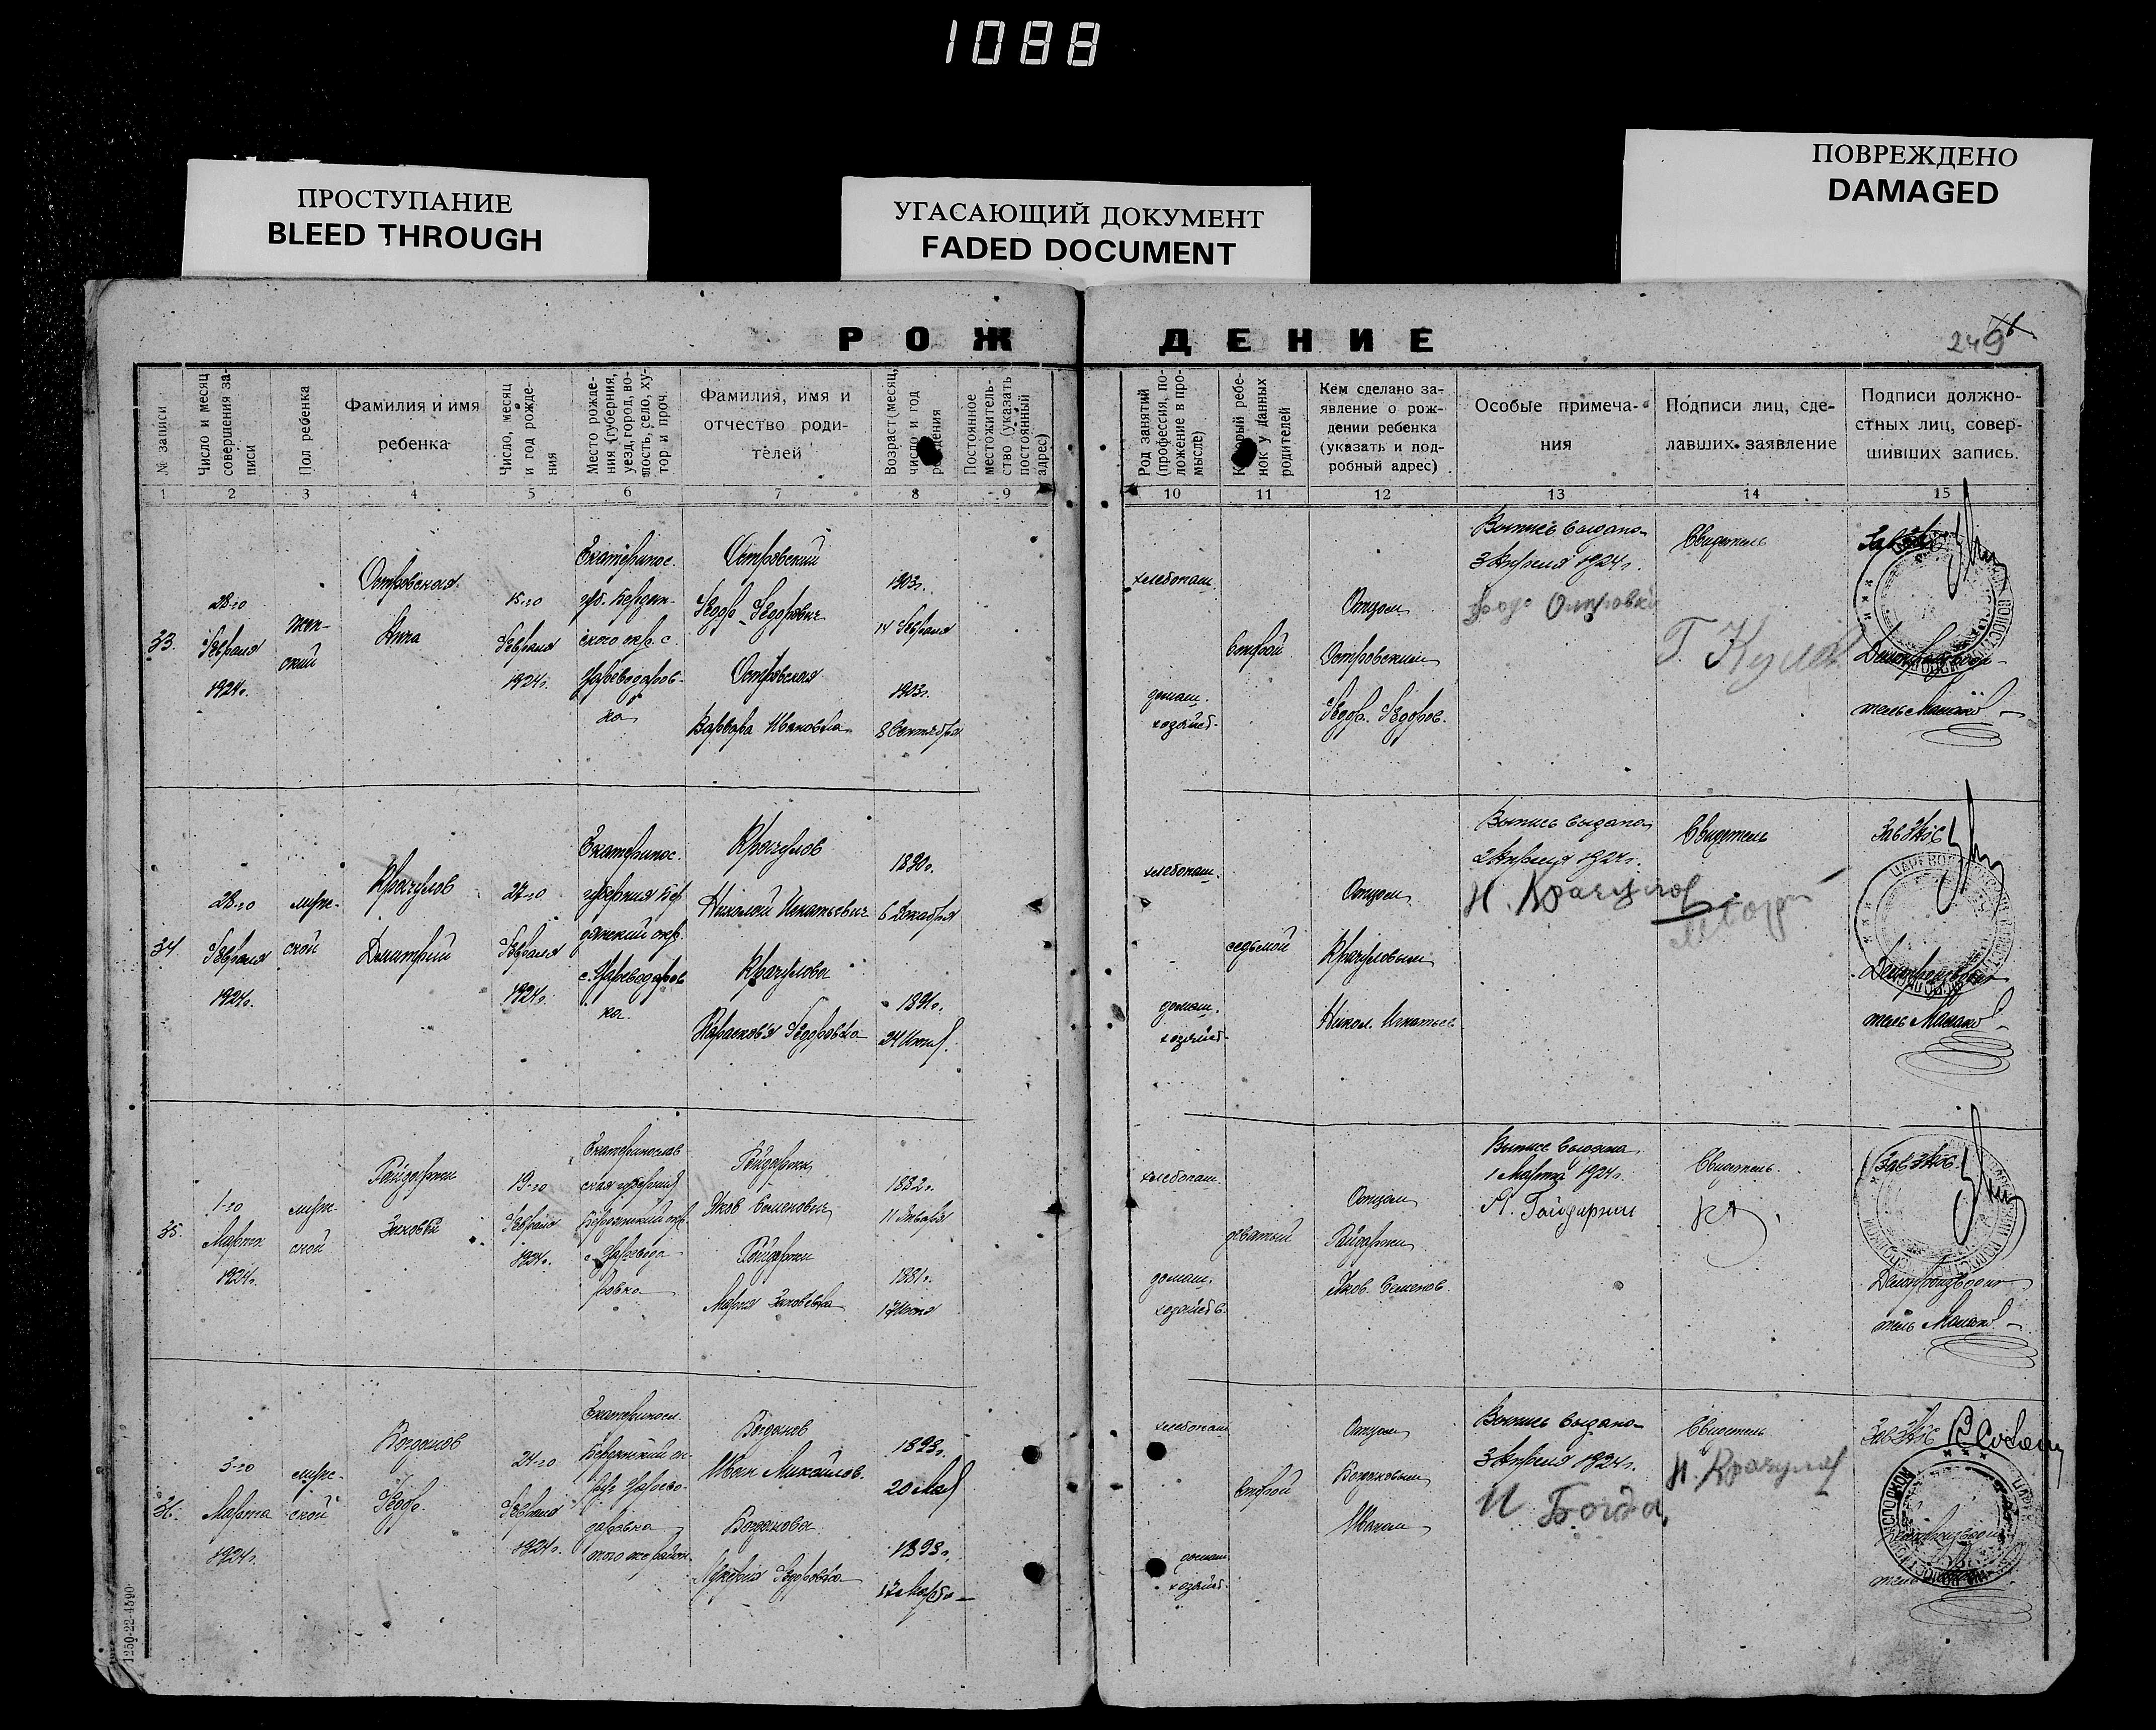 1088
ПРОСТУПАНИЕ
BLEED THROUGH
УГАСАЮЩИЙ ДОКУМЕНТ
FADED DOCUMENT
ПОВРЕЖДЕНО
DAMAGED
РОЖДЕНИЕ
249
№ записи
Число и месяц
совершения за-
писи
Пол ребенка
Фамилия и имя
ребенка
Число, месяц
и год рожде-
ния
Место рожде-
ния (губерния,
уезд, город, во-
лость, село, ху-
тор и проч.
Фамилия, имя и
отчество роди-
телей
Возраст (месяц,
число и год
рождения
Постоянное
местожитель-
ство (указать
постоянный
адрес)
Род занятий
(профессия, по-
ложение в про-
мысле)
Который ребе-
нок у данных
родителей
Кем сделано за-
явление о рож-
дении ребенка
(указать и под-
робный адрес)
Особые примеча-
ния
Подписи лиц, сде-
лавших заявление
Подписи должно-
стных лиц, совер-
шивших запись.
1 2 3 4 5 6 7 8 9 10 11 12 13 14 15
33.
28-го
Февраля
1924г.
жен-
ский
Островская
Анна
15-го
Февраля
1924г.
Екатеринос.
губ. Бердян-
ского окр. с
Цареводаров-
ка
Островский
Федор Федорович
Островская
Варвара Ивановна
1903г.
14 Февраля
1903г.
8 Сентября
хлебопаш.
домаш.
хозяйст.
второй
Отцом
Островским
Федор. Федоров.
Выпись выдана
3 Апреля 1924г.
Свидетель
Делопроизводи-
тель
34
28-го
Февраля
1924г.
муж-
ской
Крачулов
Дмитрий
27-го
Февраля
1924г.
Екатеринос.
губерния Бер
дянский окр.
с. Цареводаров
ка.
Крачулов
Николай Игнатьевич
Крачулова
Парасковья Федоровна
1890г.
6 Декабря
1891г.
24
хлебопаш.
домаш.
хозяйст.
седьмой
Отцом
Крачуловым
Никол. Игнатьев.
Выпись выдана
2 Апреля 1924г.
Н. Крачулов
Свидетель
Зав Загс
Делопроизводи
тель
35.
1-го
Марта
1924г.
муж-
ской
Гайдаржи
Зиновей
19-го
Февраля
1924г.
Екатеринослав
ская губерния
Бердянский окр.
с Царевода
ровка
Гайдаржи
Яков Семенович
Гайдаржи
Мария Зиновевна
1882г.
11 Января
1881г.
хлебопаш.
домаш.
хозяйств.
девятый
Отцом
Гайдаржи
Яков. Семенов.
Выпись выдана
1 Марта 1924г.
Я. Гайдаржи
Свидетель
Зав Загс
Делопроизводи
тель
36.
3-го
Марта
1924г.
муж-
ской
Богданов
Федор.
24-го
Февраля
1924г.
Екатериносл.
Бердянский ок-
руг Царево-
даровка
того же район.
Богданов
Иван Михайлов.
Богданова
Лукерия Федоровна
1893г.
20 Мая
1893г.
хлебопаш
домаш
хозяйст.
второй
Отцом
Богдановым
Иваном
Выпись выдана
3 Апреля 1924г.
И Богда
Свидетель
Н. Крачулов
Зав Загс
1250-22-1590